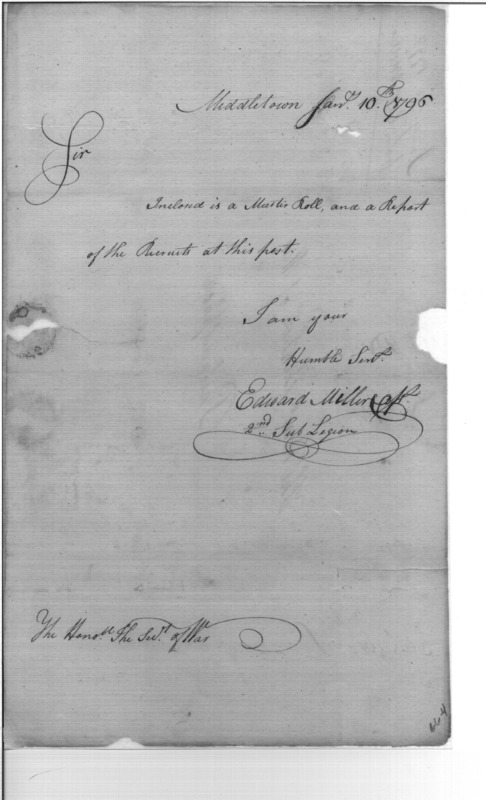 Middletown Jany. 10th. 1796
Sir
Inclosed is a Muster Roll, and a Report
of the Recruits at this post.
I am your
Humble Servt.
Edward Miller Capt.
2nd Sub Legion
The Honoble The Secrt. of War